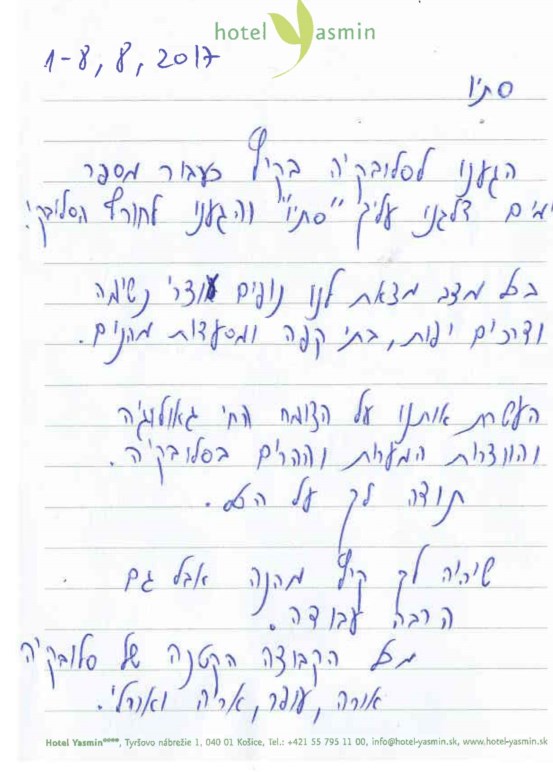 hotel Yasmin
1-8,8,2017
סתיו
הגענו לסלובקיה בקיץ כעבור מספר
ימים דלגנו עליך "סתיו" והגענו לחורף הסלובקי.
בכל מצב מצאת לנו נופים עוצרי נשימה
ודרכים יפות, בתי קפה ומסעדות מהנים.
העשרת אותנו על הצומח החי גאולוגיה
והווצרות המערות וההרים בסלובקיה.
תודה לך על הכל.
שיהיה לך קיץ מהנה אבל גם
הרבה עבודה.
מכל הקבוצה הקטנה של סלובקיה
אורה, עופר, אריה ואורלי.
Hotel Yasmin****, Tyršovo nábrežie 1, 040 01 Košice, Tel.: +421 55 795 11 00, info@hotel-yasmin.sk, www.hotel-yasmin.sk